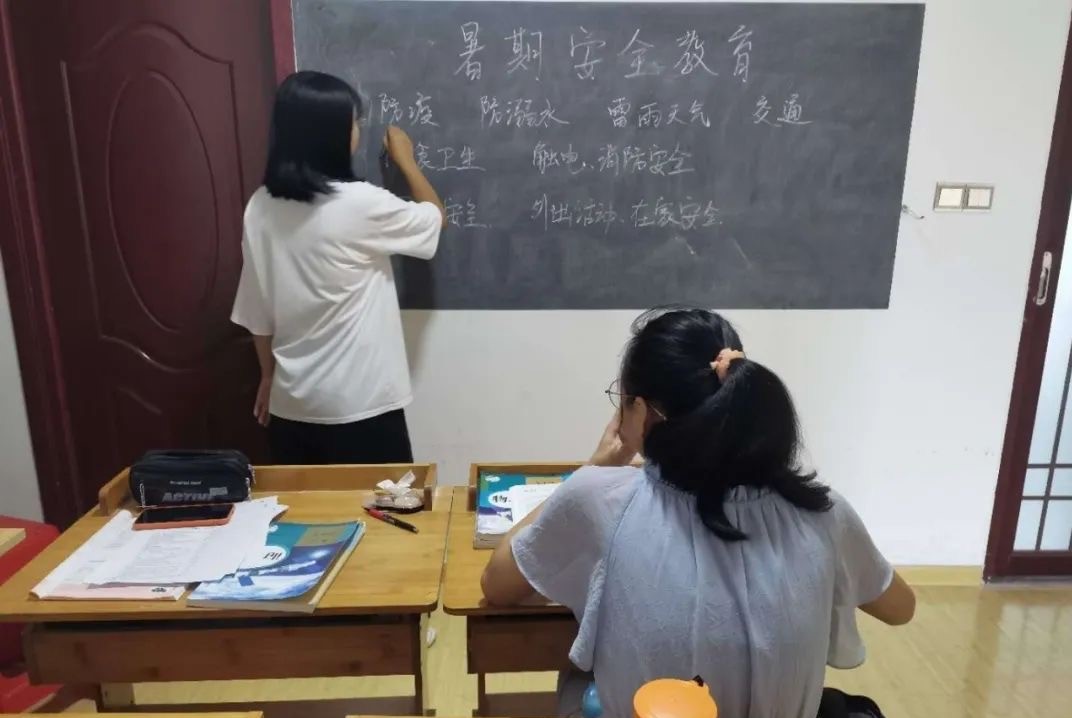 暑期安全教育
防疫 防溺水 雷雨天气 交通
食卫生 触电、消防安全
安全 外出活动、在家安全
ACTIVE
物
理